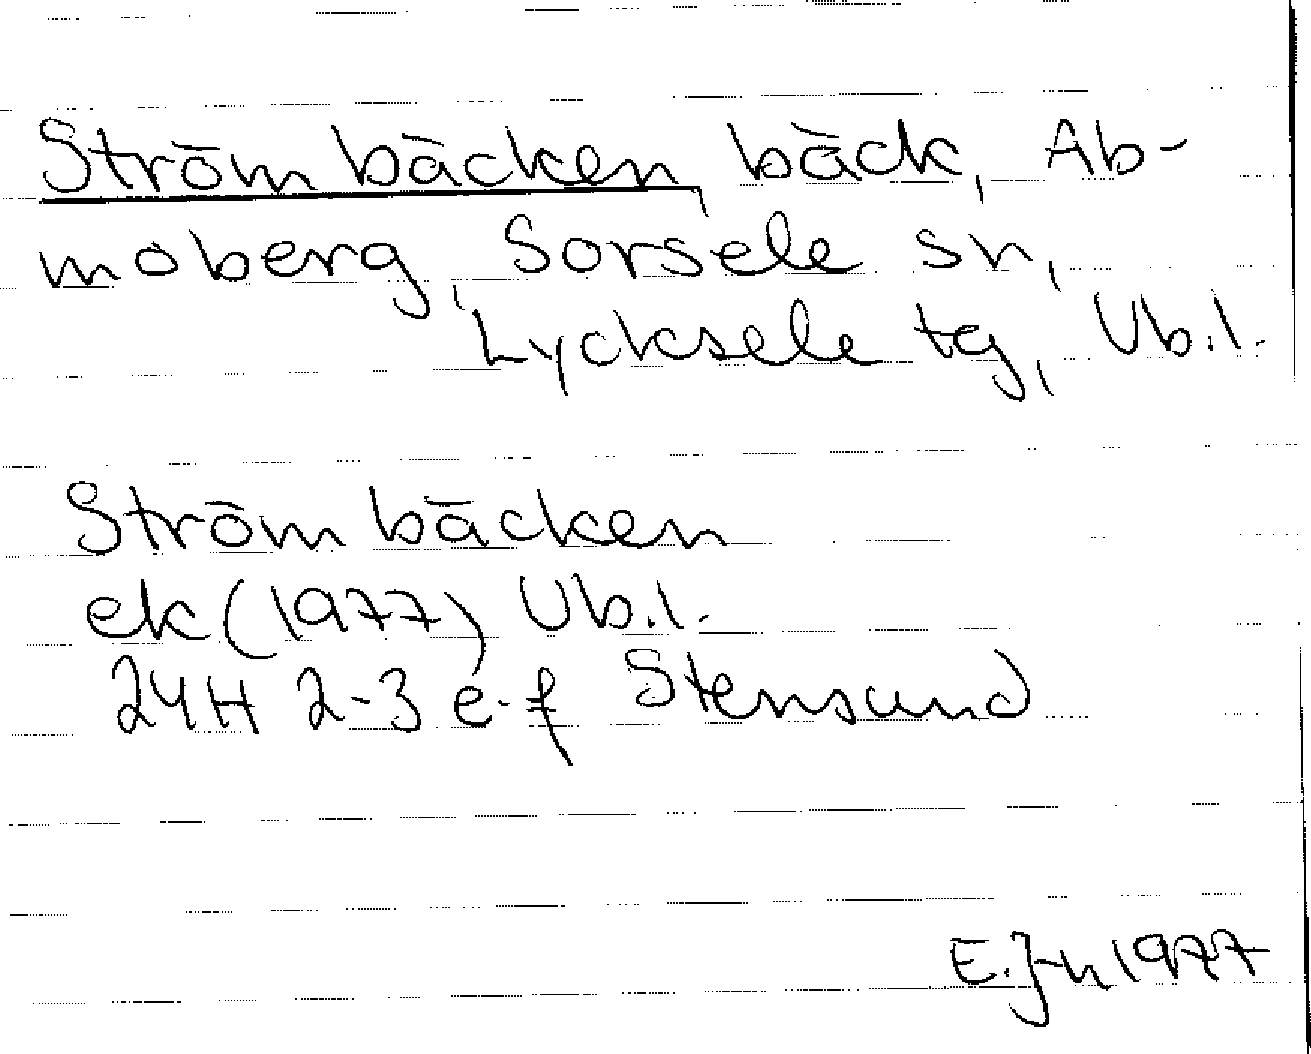 Strömbäcken bäck, Ab-
moberg, Sorsele sn,
Lycksele tg, Vb.l.
Strömbäcken
ek (1977) Vb.l.
24H 2-3 e-f Stensund
E.J-n 1977